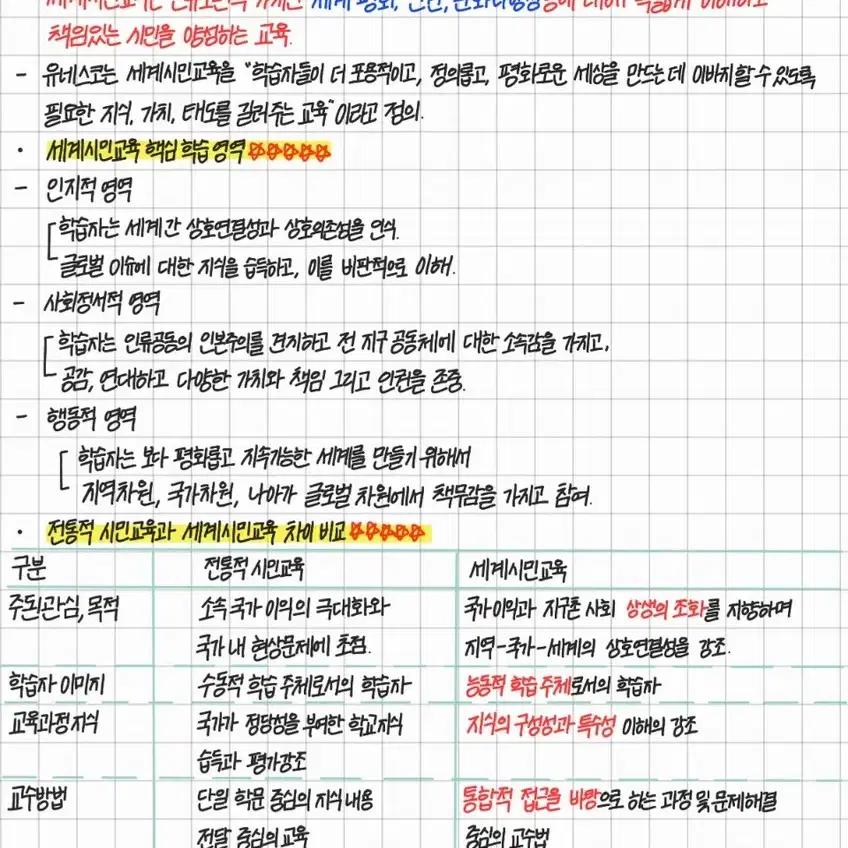 세계시민교육는 인류보편적 가치인 세계 평화, 인권, 문화다양성등에 대해 폭넓게 이해하고
책임있는 시민을 양성하는 교육.
- 유네스코는 세계시민교육을 "학습자들이 더 포용적이고, 정의롭고, 평화로운 세상을 만드는 데 이바지할 수 있도록
필요한 지식, 가치, 태도를 길러주는 교육"이라고 정의.
· 세계시민교육 핵심 학습 영역 ☆☆☆☆☆
- 인지적 영역
학습자는 세계간 상호연결성과 상호의존성을 인식.
글로벌 이슈에 대한 지식을 습득하고, 이를 비판적으로 이해.
- 사회정서적 영역
학습자는 인류공동의 인본주의를 견지하고 전 지구 공동체에 대한 소속감을 가지고,
공감, 연대하고 다양한 가치와 책임 그리고 인권을 존중.
- 행동적 영역
학습자는 보다 평화롭고 지속가능한 세계를 만들기 위해서
지역차원, 국가차원, 나아가 글로벌 차원에서 책무감을 가지고 참여.
· 전통적 시민교육과 세계시민교육 차이 비교 ☆☆☆☆☆
구분 전통적 시민교육 세계시민교육
주된관심, 목적 소속 국가 이익의 극대화와 국가이익과 지구촌 사회 상생의 조화를 지향하며
국가 내 현상문제에 초점. 지역-국가-세계의 상호연결성을 강조.
학습자 이미지 수동적 학습 주체로서의 학습자 능동적 학습 주체로서의 학습자
교육과정지식 국가가 정당성을 부여한 학교지식 지식의 구성성과 특수성 이해의 강조
습득과 평가강조
교수방법 단일 학문 중심의 지식 내용 통합적 접근을 바탕으로 하는 과정 및 문제해결
전달 중심의 교육 중심의 교수법